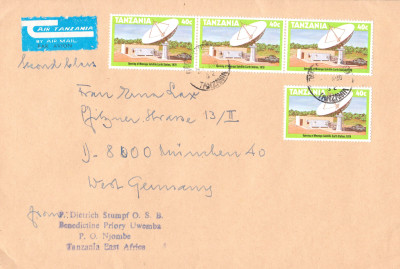 AIR TANZANIA
BY AIR MAIL
TANZANIA 40c
TANZANIA 40c
TANZANIA 40c
Opening of Mwenge Satellite Earth Station, 1979
Opening of Mwenge Satellite Earth Station, 1979
Opening of Mwenge Satellite Earth Station, 1979
TANZANIA
TANZANIA
Second Class
TANZANIA 40c
Opening of Mwenge Satellite Earth Station, 1979
Frau
Pfitzner Strasse 13/II
D-8000 München 40
West Germany
from:
P. Dietrich Stumpf O. S. B.
Benedictine Priory Uwemba
P. O. Njombe
Tanzania East Africa